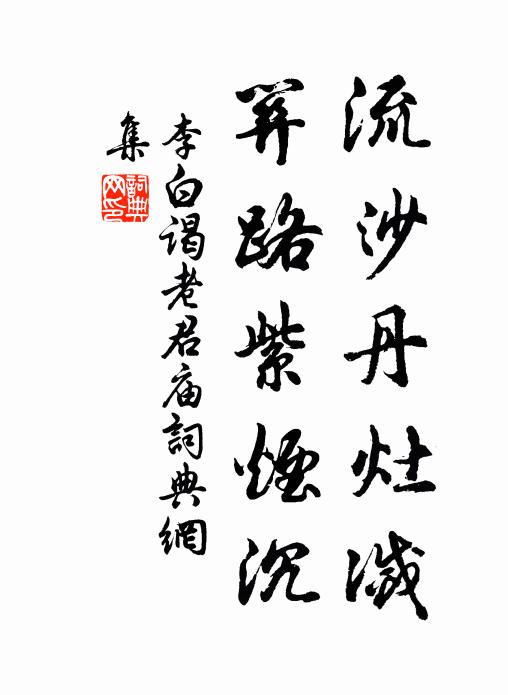 流沙丹灶滅
關路紫煙沉
李白谒老君庙詞典網
集
詞典网印